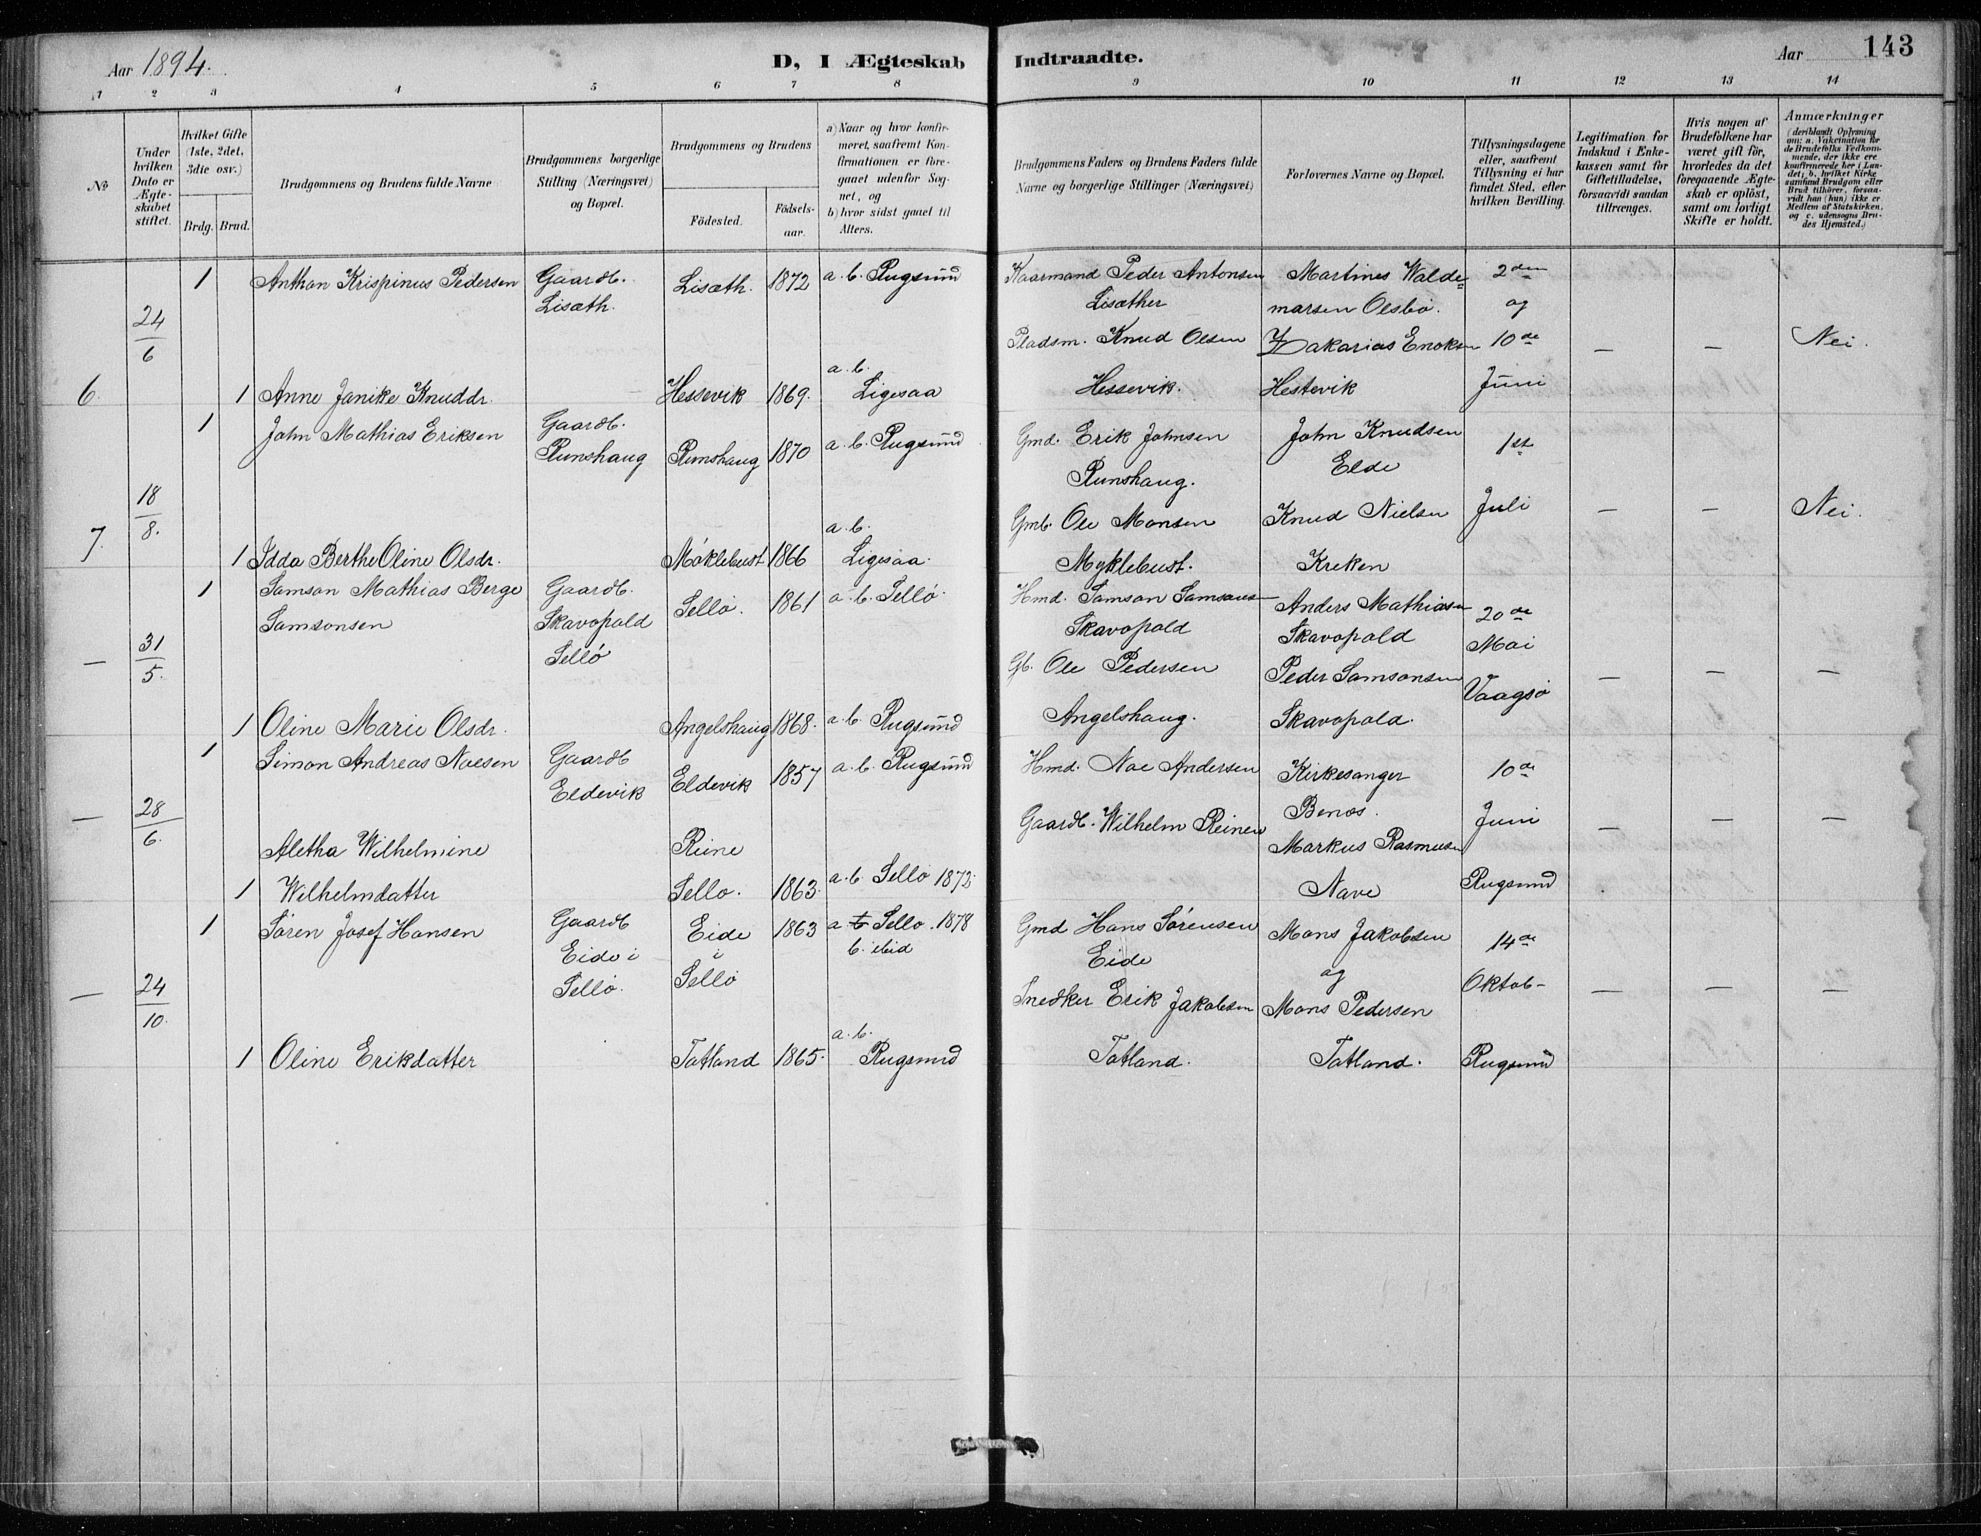 Aar 1894.
D, I Ægteskab Indtraadte.
Aar 143
1 2 3 4 5 6 7 8 9 10 11 12 13 14
No
Under hvilken Dato er Ægteskabet stiftet.
Hvilket Gifte (1ste, 2det, 3die osv.)
Brdg. Brud.
Brudgommens og Brudens fulde Navne
Brudgommens borgerlige Stilling (Næringsvei) og Bopæl.
Brudgommens og Brudens
Födested.
Födselsaar.
a) Naar og hvor konfirmeret, saafremt Konfirmationen er foregaaet udenfor Sognet, og
b) hvor sidst gaaet til Alters.
Brudgommens Faders og Brudens Faders fulde Navne og borgerlige Stillinger (Næringsvei)
Forlovernes Navne og Bopæl.
Tillysningsdagene eller, saafremt Tillysning ei har fundet Sted, efter hvilken Bevilling.
Legitimation for Indskud i Enkekassen samt for Giftetilladelse, forsaavidt saadan tiltrænges.
Hvis nogen af Brudefolkene har været gift för, hvorledes da det foregaaende Ægteskab er oplöst, samt om lovligt Skifte er holdt.
Anmærkninger
(deriblandt Oplysning om: a. Vakcination for de Brudefolks Vedkommende, der ikke ere konfirmerede her i Landet; b. hvilket Kirkesamfund Brudgom eller Brud tilhörer, forsaavidt han (hun) ikke er Medlem af Statskirken, og c. udensogns Brudes Hjemsted.)
1 Anthon Krispinus Pedersen Gaardb. Lisæth. 1872 a. b. Rugsund Kaarmand Peder Antonsen Martines Walde= 2den
Lisæth. Lisæther marsen Olsbö. og
24/6 Pladsm. Knud Olsen Zakarias Enoksen 10de — — Nei.
a. b.
6. 1 Anne Janike Knuddr. Hessevik 1869. Ligesaa Hessevik. Hestevik Juni
1 John Mathias Eriksen Gaardb. Rimshaug 1870 a. b. Rugsund Gmd. Erik Johnsen John Knudsen 1ste
Runshaug Runshaug. Elde
18/8. Gmb. Ole Monsen Knud Nielsen Juli — — Nei.
a. b.
7. 1 Idda Berthe Oline Olsdr. Möklebust 1866 Ligesaa. Myklebust. Kreken
1 Samson Mathias Berge Gaardb. Sellö. 1861 a. b. Sellö. Hmd. Samson Samsons Anders Mathiasen 20de
Samsonsen Skavopold Skavopold Skavopold Mai
— 31/5. Sellö Gb. Ole Pedersen Peder Samsonsen Vaagsö — — —
1 Oline Marie Olsdr. Angelshaug 1868. a. b. Rugsund Angelshaug. Skavopold.
1 Simon Andreas Noesen Gaardb Eldevik 1857 a. b. Rugsund Hmd. Noe Andersen Kirkesanger 10de
Eldevik
— 28/6. Gaardb. Wilhelm Reinen Benæs. Juni — — —
Aletha Wilhelmine Reine Markus Rasmusen
1 Wilhelmdatter Sellö. 1863. a. b Sellö 1872. Nave Rugsund
1 Sören Josef Hansen Gaardb Eide 1863 a Sellö. 1878 Gmd Hans Sörensen Mons Jakobsen 14de
Eide i i b. ibid Eide og
— 24/10. Sellö. Sellö Snedker Erik Jakobsen Mons Pedersen Oktob— — — —
a. b.
1 Oline Eriksdatter Totland 1865. Rugsund Totland. Totland. Rugsund